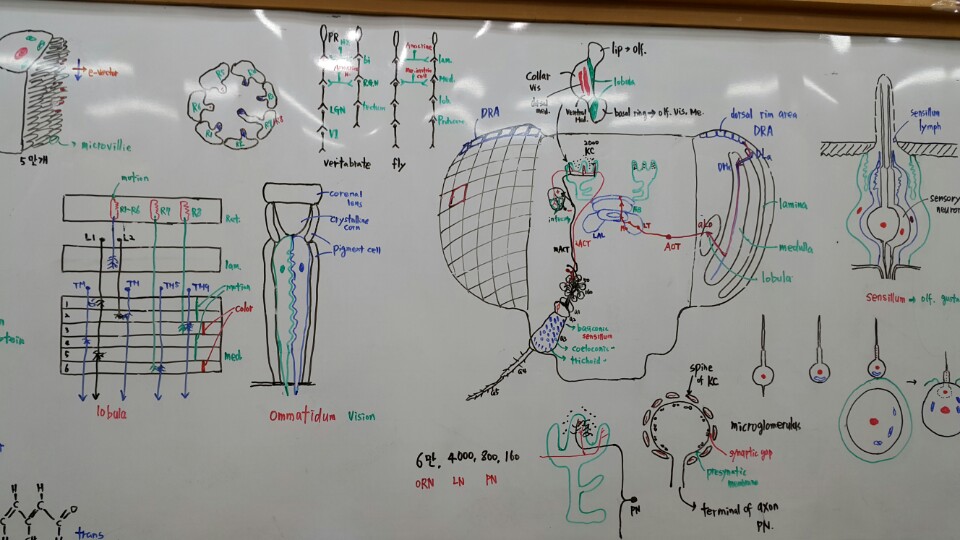 e-vector
5만개
microvillie
PR
LGN
V1
RGN
vertebrate
Amacrine
lam.
Med.
Lob
fly
lip → olf.
Collar
Vis
lobula
basal ring → olf. Vis. Me.
DRA
2000
KC
dorsal rim area
DRA
DLa
lamina
medulla
lobula
AOT
LT
LAL
mACT
lACT
basiconic
sensillum
coeloconic
trichoid
sensillum
lymph
sensory
neuron
sensillum → olf. gusta
motion
R1~R6
R7
R8
Ret.
L1
L2
lam.
TM1
TM
TM5
TM9
motion
color
1
2
3
4
5
6
Med
lobula
corneal
lens
crystalline
corn
pigment cell
Ommatidum Vision
6만, 4.000, 800, 160
ORN LN PN
PN
spine
of KC
microglomerulus
synaptic gap
presynatic
membrane
terminal of axon
PN.
H H
C C C O
trans